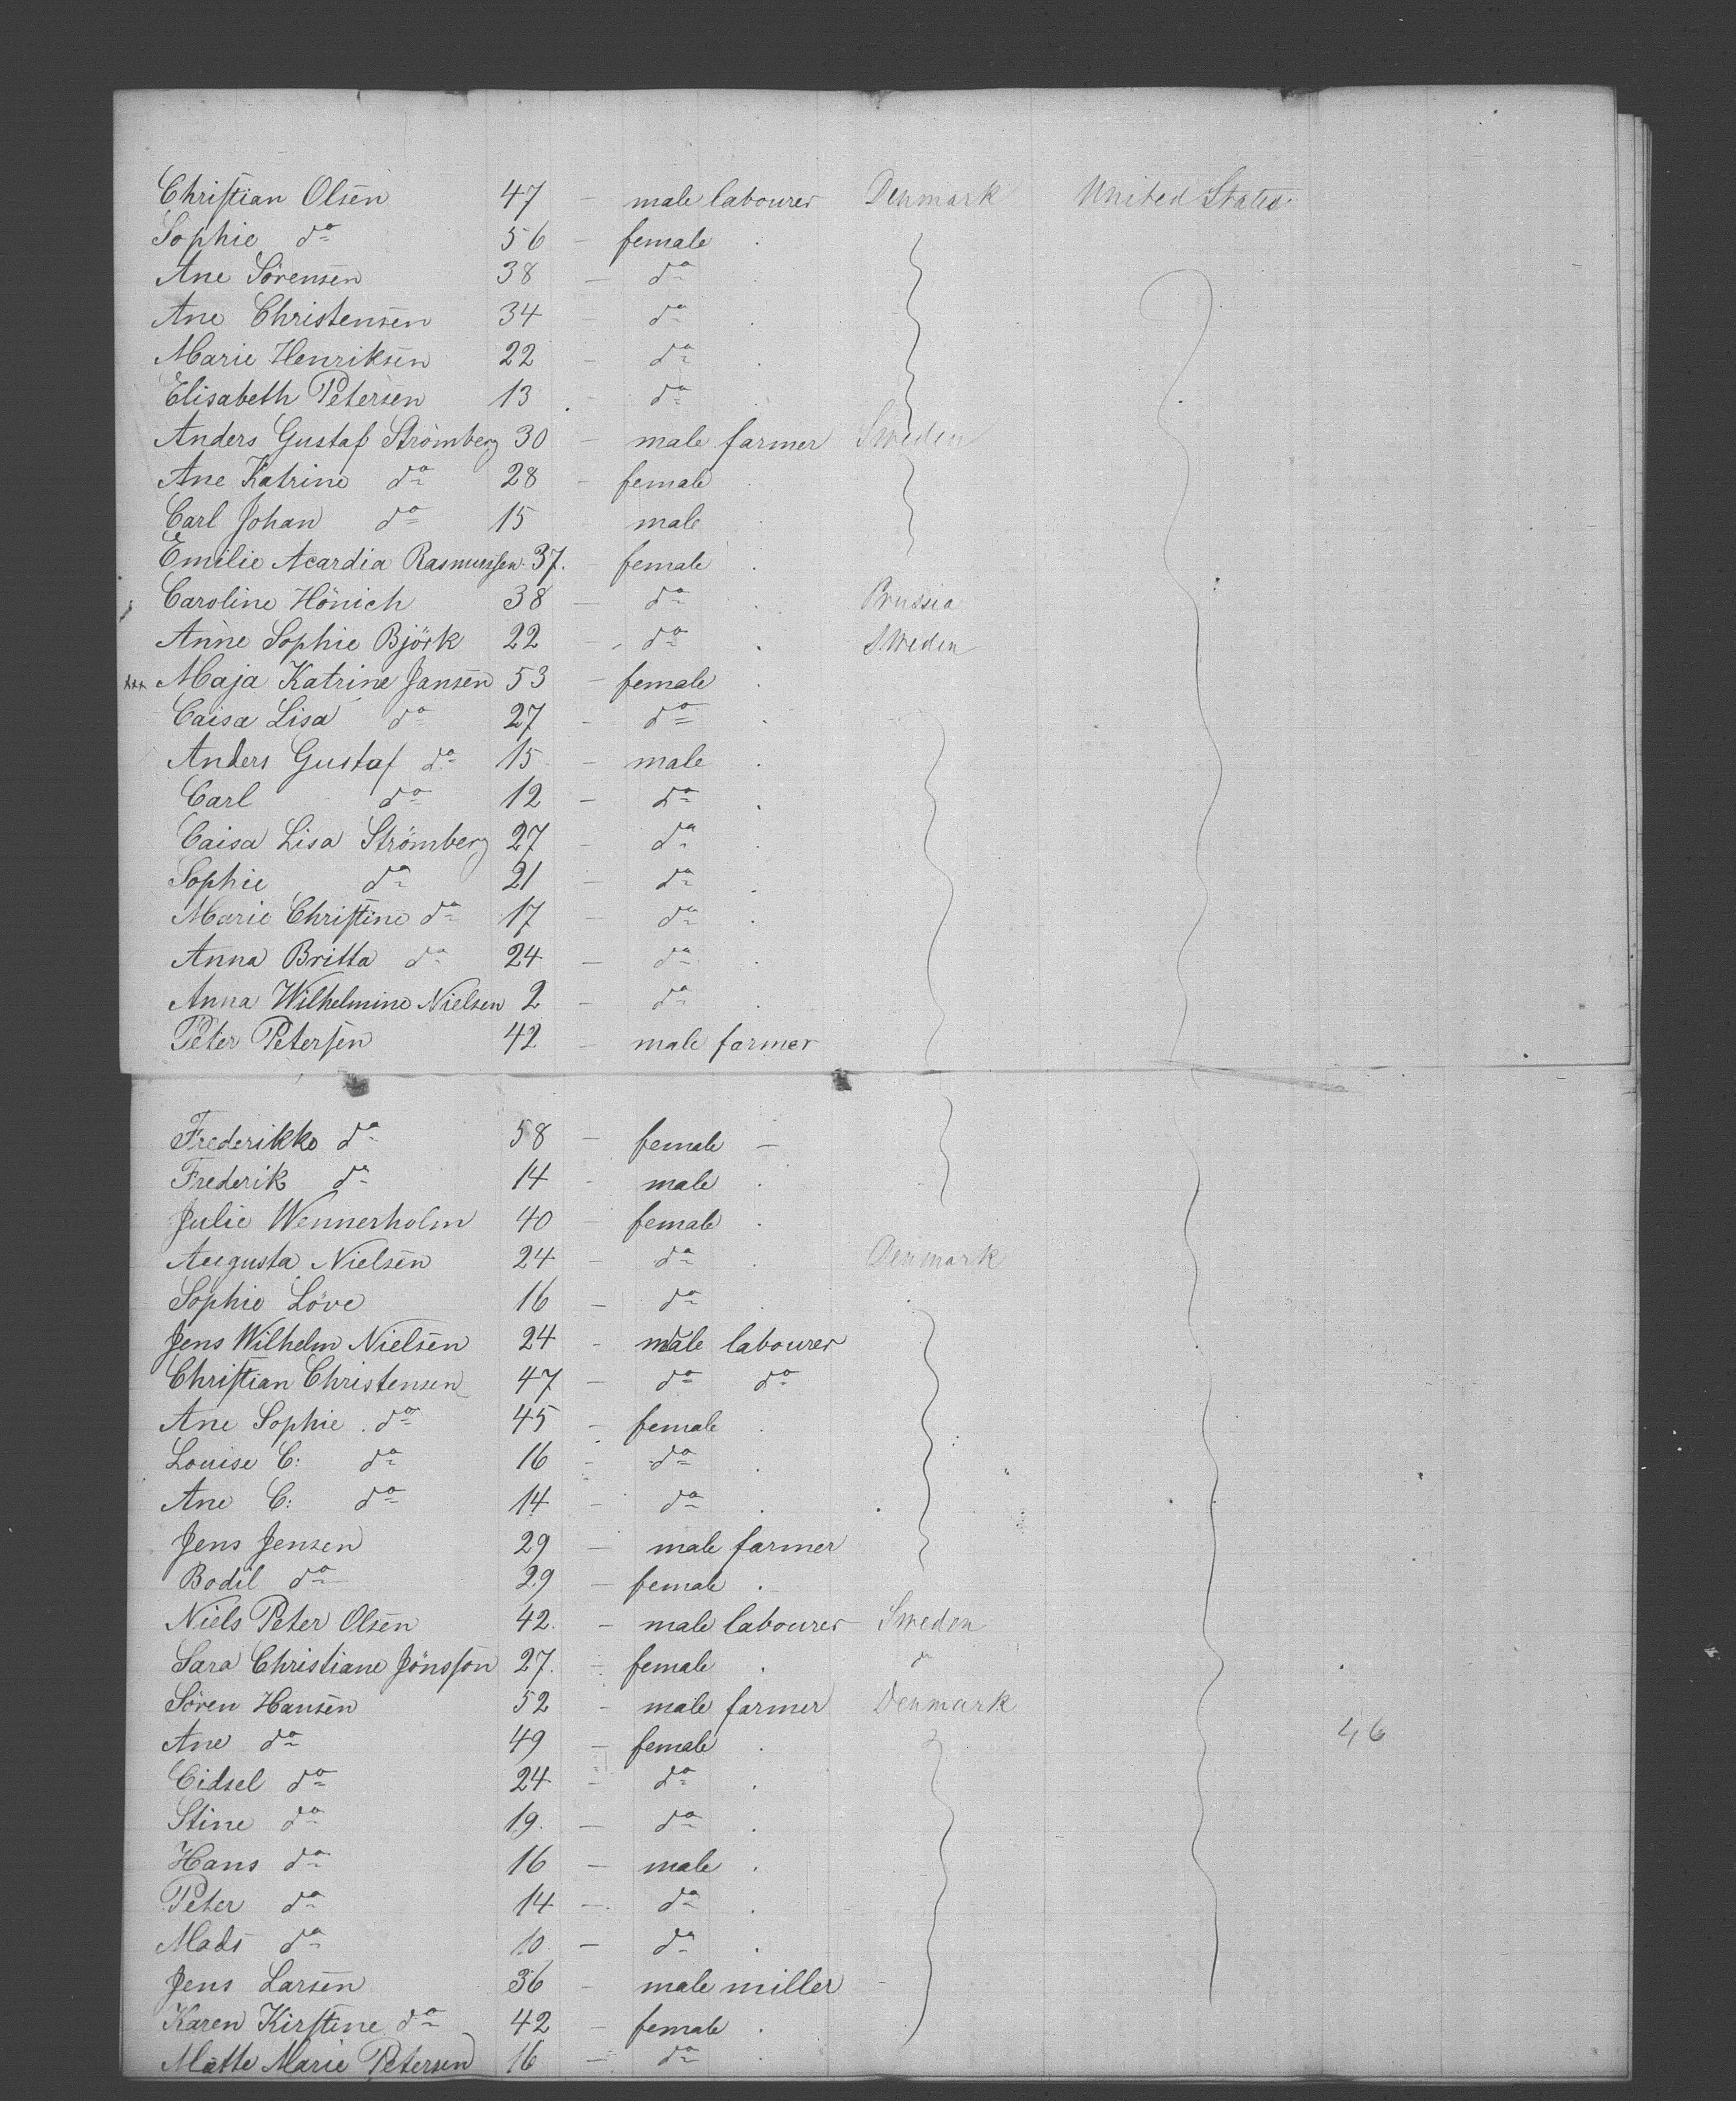 Christian Olsen 47 - male labourer Denmark United States
Sophie do 56 - female
Ane Sörensen 38 - do
Ane Christensen 34 - do
Marie Henriksen 22 - do
Elisabeth Petersen 13 - do
Anders Gustaf Strömberg 30 - male farmer Sweden
Ane Katrine do 28 - female
Carl Johan do 15 male
Emilie Acardia Rasmussen 37. - female
Caroline Hönich 38 - do Prussia
Anne Sophie Björk 22 - do Sweden
xxx Maja Katrine Jansen 53 - female
Caisa Lisa do 27 - do
Anders Gustaf do 15 - male
Carl do 12 - do
Caisa Lisa Strömberg 27 - do
Sophie do 21 - do
Marie Christine do 17 - do
Anna Britta do 24 - do
Anna Wilhelmine Nielsen 2 - do
Peter Petersen 42 - male farmer
Frederikke do 58 - female -
Frederik do 14 - male
Julie Wennerholm 40 - female
Augusta Nielsen 24 - do Denmark
Sophie Löve 16 - do
Jens Wilhelm Nielsen 24 - male labourer
Christian Christensen 47 - do do
Ane Sophie do 45 - female
Louise C: do 16 - do
Ane C: do 14 - do
Jens Jensen 29 - male farmer
Bodil do 29 - female
Niels Peter Olsen 42 - male labourer Sweden
Sara Christiane Jönsson 27. - female do
Sören Hansen 52 - male farmer Denmark
Ane do 49 - female 46
Cidsel do 24 - do
Stine do 19. - do
Hans do 16 - male
Peter do 14 - do
Mads do 10 - do
Jens Larsen 36 - male miller
Karen Kirstine do 42 - female
Mätte Marie Petersen 16 - do